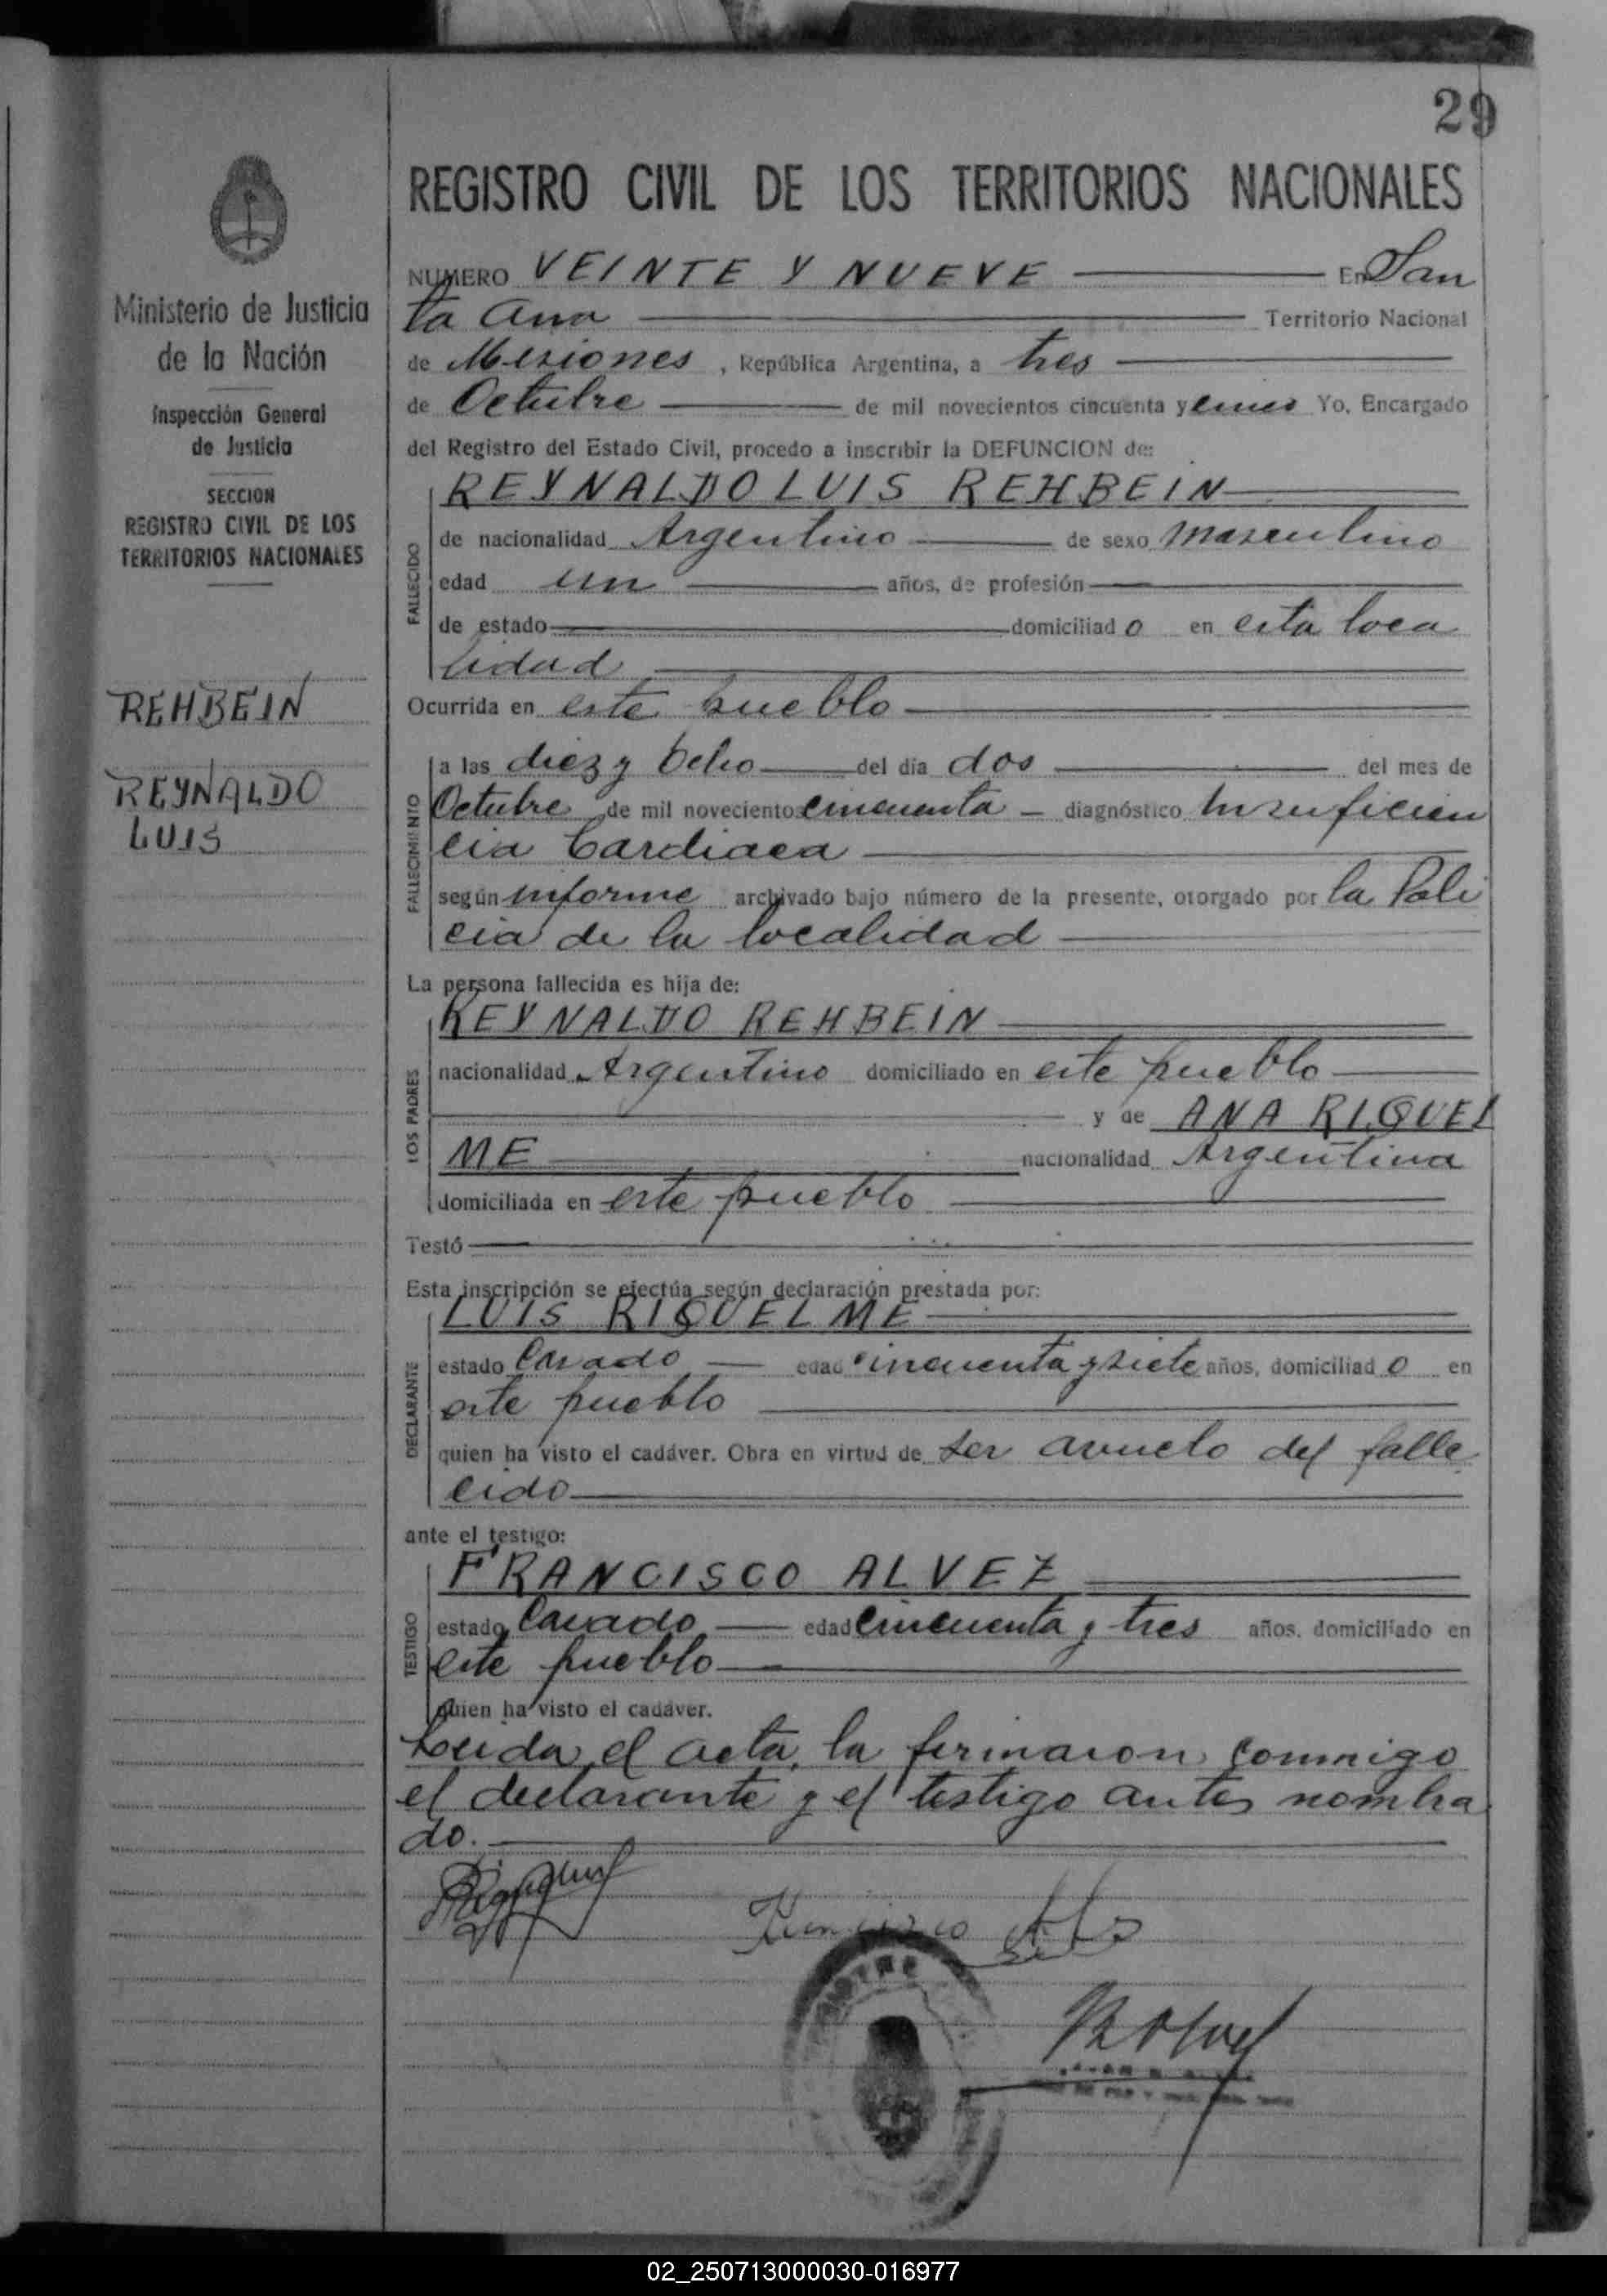 29
REGISTRO CIVIL DE LOS TERRITORIOS NACIONALES
Ministerio de Justicia
de la Nación
Inspección General
de Justicia
SECCION
REGISTRO CIVIL DE LOS
TERRITORIOS NACIONALES
REHBEIN
REYNALDO
LUIS
NUMERO VEINTE Y NUEVE En San
ta Ana Territorio Nacional
de Misiones, República Argentina, a tres
de Octubre de mil novecientos cincuenta y Yo, Encargado
del Registro del Estado Civil, procedo a inscribir la DEFUNCION de:
REYNALDO LUIS REHBEIN
FALLECIDO
de nacionalidad Argentino de sexo masculino
edad un años, de profesión
de estado domiciliado en esta loca
lidad
Ocurrida en este pueblo
FALLECIMIENTO
a las diez y ocho del día dos del mes de
Octubre de mil novecientos cincuenta diagnóstico Insuficien
cia Cardiaca
según informe archivado bajo número de la presente, otorgado por la Poli
cia de la localidad
La persona fallecida es hija de:
LOS PADRES
REYNALDO REHBEIN
nacionalidad Argentino domiciliado en este pueblo
y de ANA RIQUEL
ME nacionalidad Argentina
domiciliada en este pueblo
Testó
Esta inscripción se efectúa según declaración prestada por:
DECLARANTE
LUIS RIQUELME
estado Casado edad cincuenta y siete años, domiciliado en
este pueblo
quien ha visto el cadáver. Obra en virtud de ser avuelo del falle
cido
ante el testigo:
TESTIGO
FRANCISCO ALVEZ
estado Casado edad cincuenta y tres años, domiciliado en
este pueblo
quien ha visto el cadáver.
Leida el acta, la firmaron conmigo
el declarante y el testigo antes nombra
do.
Francisco
02_250713000030-016977